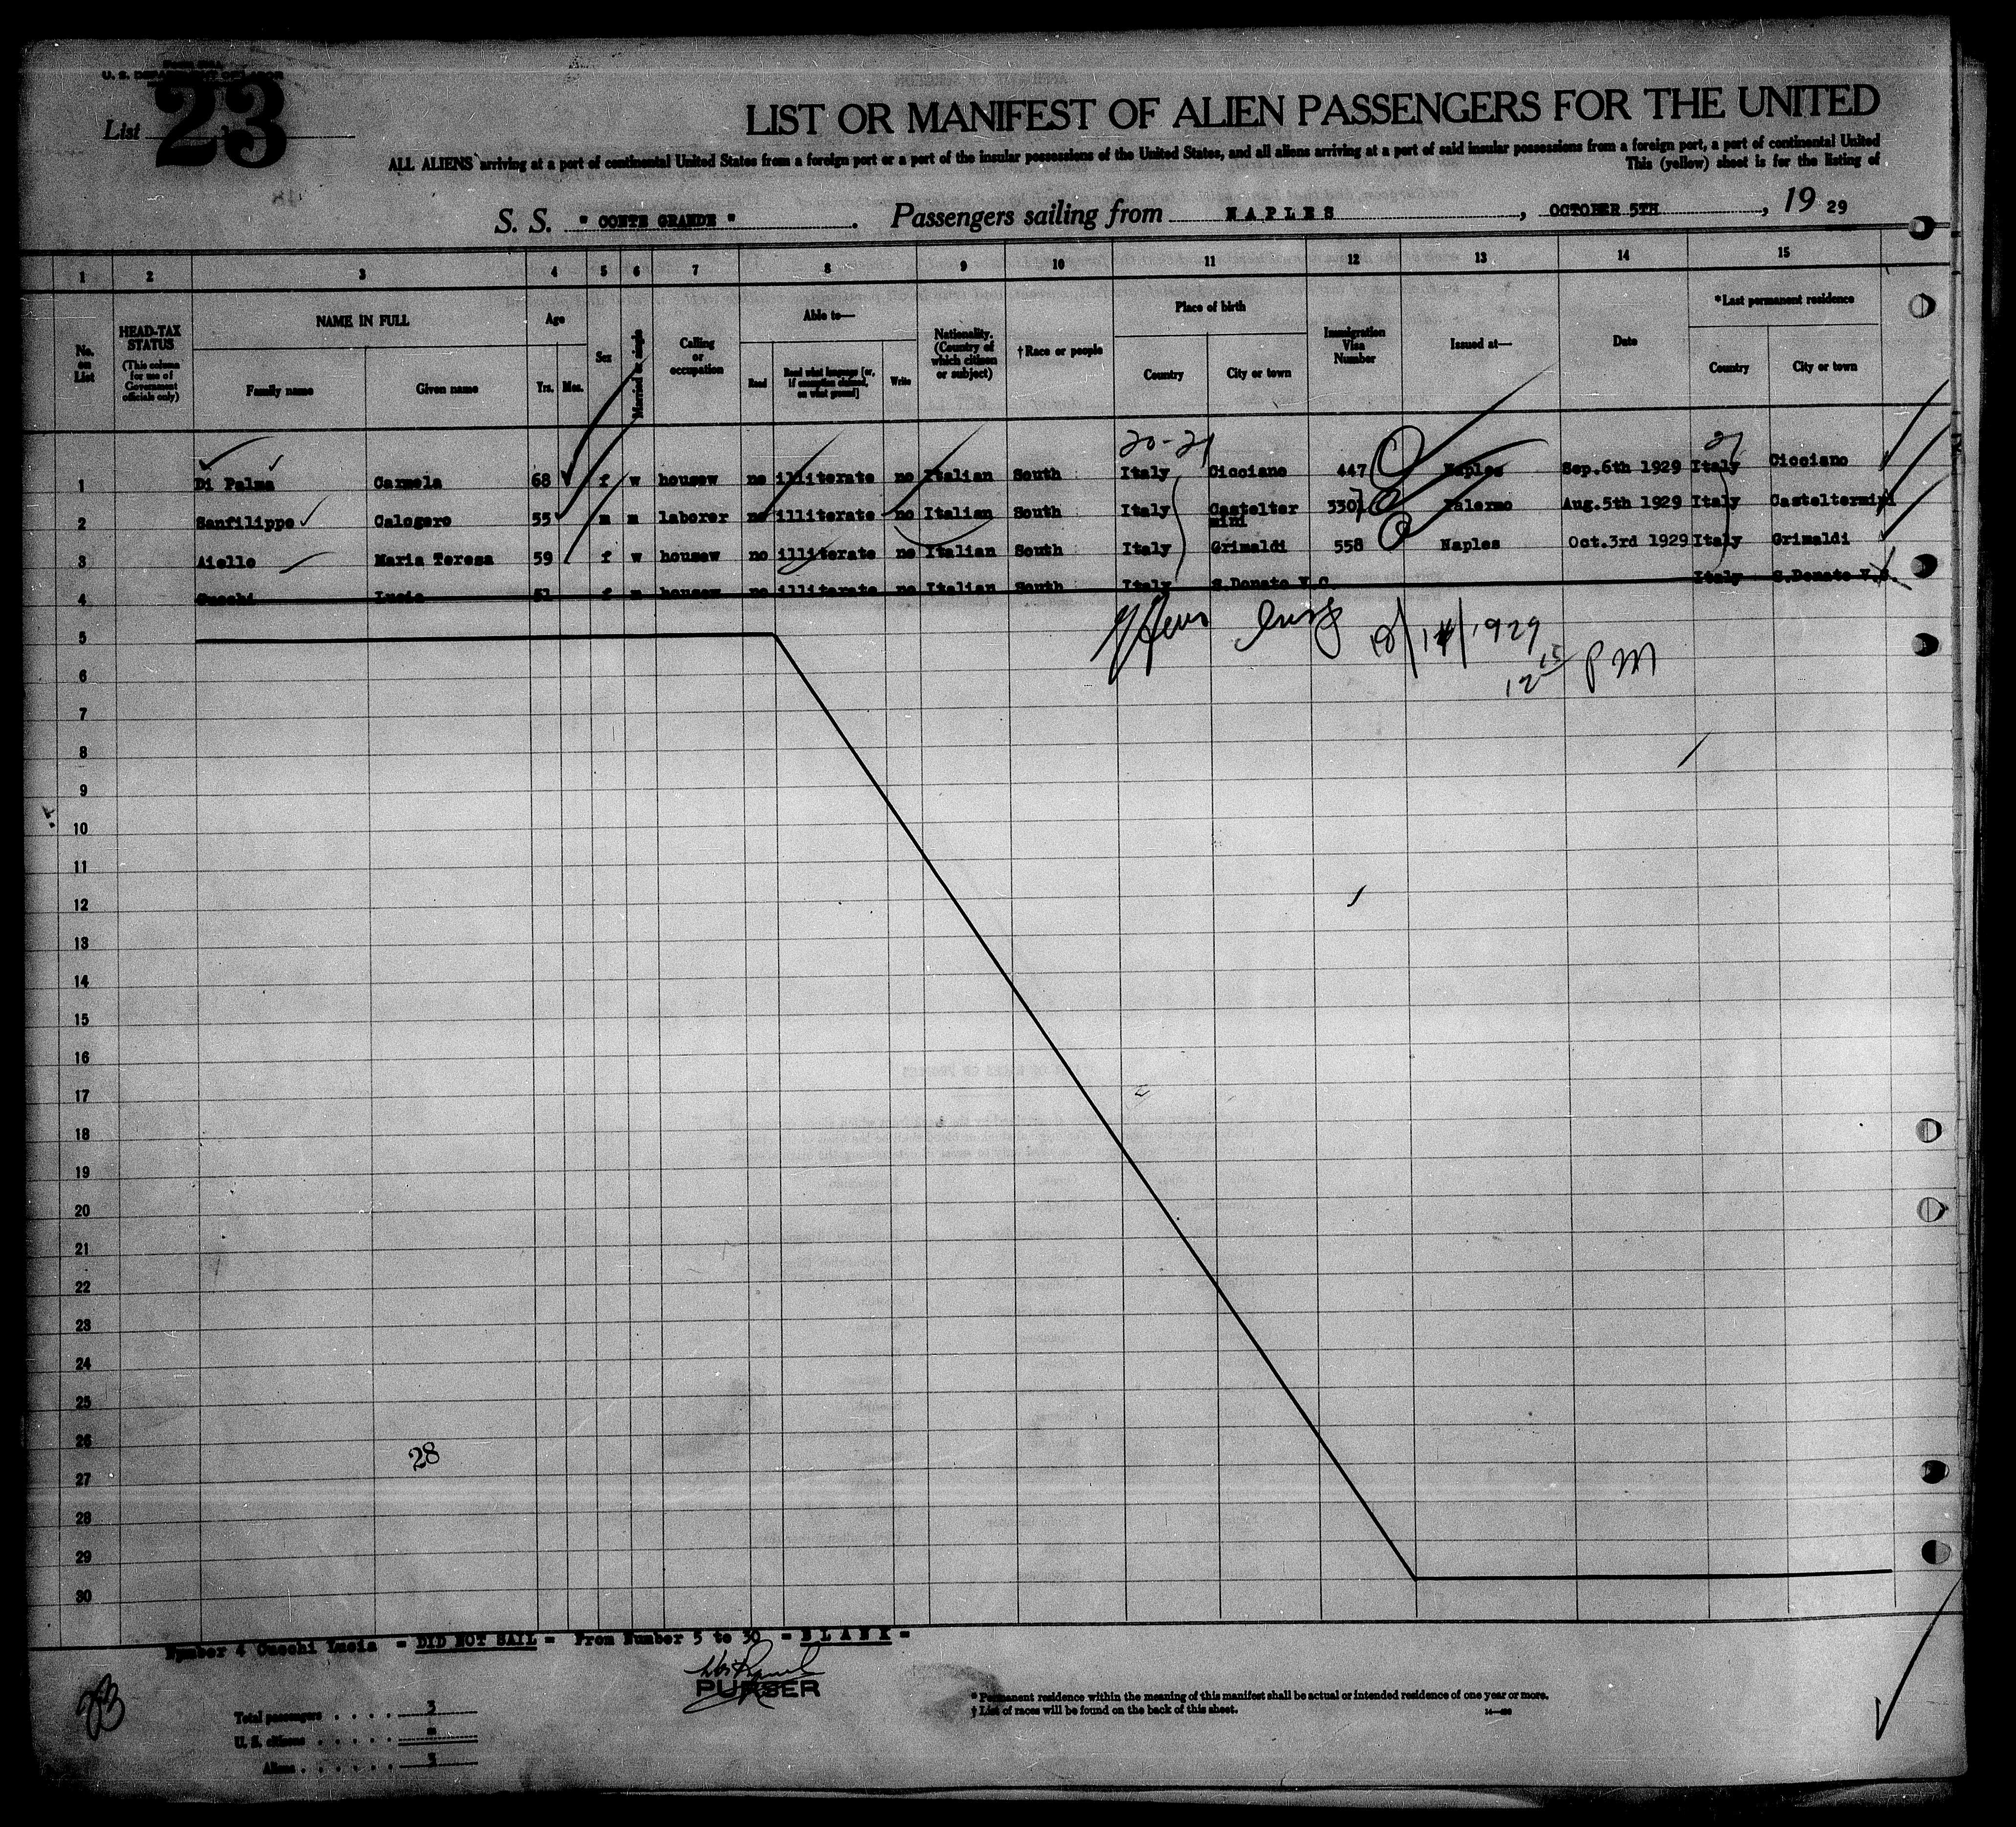 U. S. DEPARTMENT OF LABOR
List 23
LIST OR MANIFEST OF ALIEN PASSENGERS FOR THE UNITED
ALL ALIENS arriving at a port of continental United States from a foreign port or a port of the insular possessions of the United States, and all aliens arriving at a port of said insular possessions from a foreign port, a port of continental United
This (yellow) sheet is for the listing of
S. S. " CONTE GRANDE ". Passengers sailing from NAPLES, OCTOBER 5TH, 19 29
1 2 3 4 5 6 7 8 9 10 11 12 13 14 15
No. on List
HEAD-TAX STATUS (This column for use of Government officials only)
NAME IN FULL Family name Given name
Age Yrs. Mos.
Sex
Married or single
Calling or occupation
Able to— Read Read what language [or, if exemption claimed, on what ground] Write
Nationality. (Country of which citizen or subject)
†Race or people
Place of birth Country City or town
Immigration Visa Number
Issued at—
Date
*Last permanent residence Country City or town
20-21 21
1 Di Palma Carmela 68 f w housew no illiterate no Italian South Italy Cicciano 447 Naples Sep.6th 1929 Italy Cicciano
2 Sanfilippo Calogero 55 m m laborer no illiterate no Italian South Italy Castelter mini 3301 Palermo Aug.5th 1929 Italy Casteltermini
3 Aiello Maria Teresa 59 f w housew no illiterate no Italian South Italy Grimaldi 558 Naples Oct.3rd 1929 Italy Grimaldi
4 Cucchi Lucia 51 f m housew no illiterate no Italian South Italy S.Donato V.C. Italy S.Donato V.C.
5
6
12 15 PM
7
8
9
10
11
12
13
14
15
16
17
18
19
20
21
22
23
24
25
26
28
27
28
29
30
Number 4 Cucchi Lucia = DID NOT SAIL = From Number 5 to 30 = BLANK =
PURSER
23
Total passengers . . . . 3
U. S. citizens . . . . . =
Aliens . . . . . . 3
* Permanent residence within the meaning of this manifest shall be actual or intended residence of one year or more.
† List of races will be found on the back of this sheet.